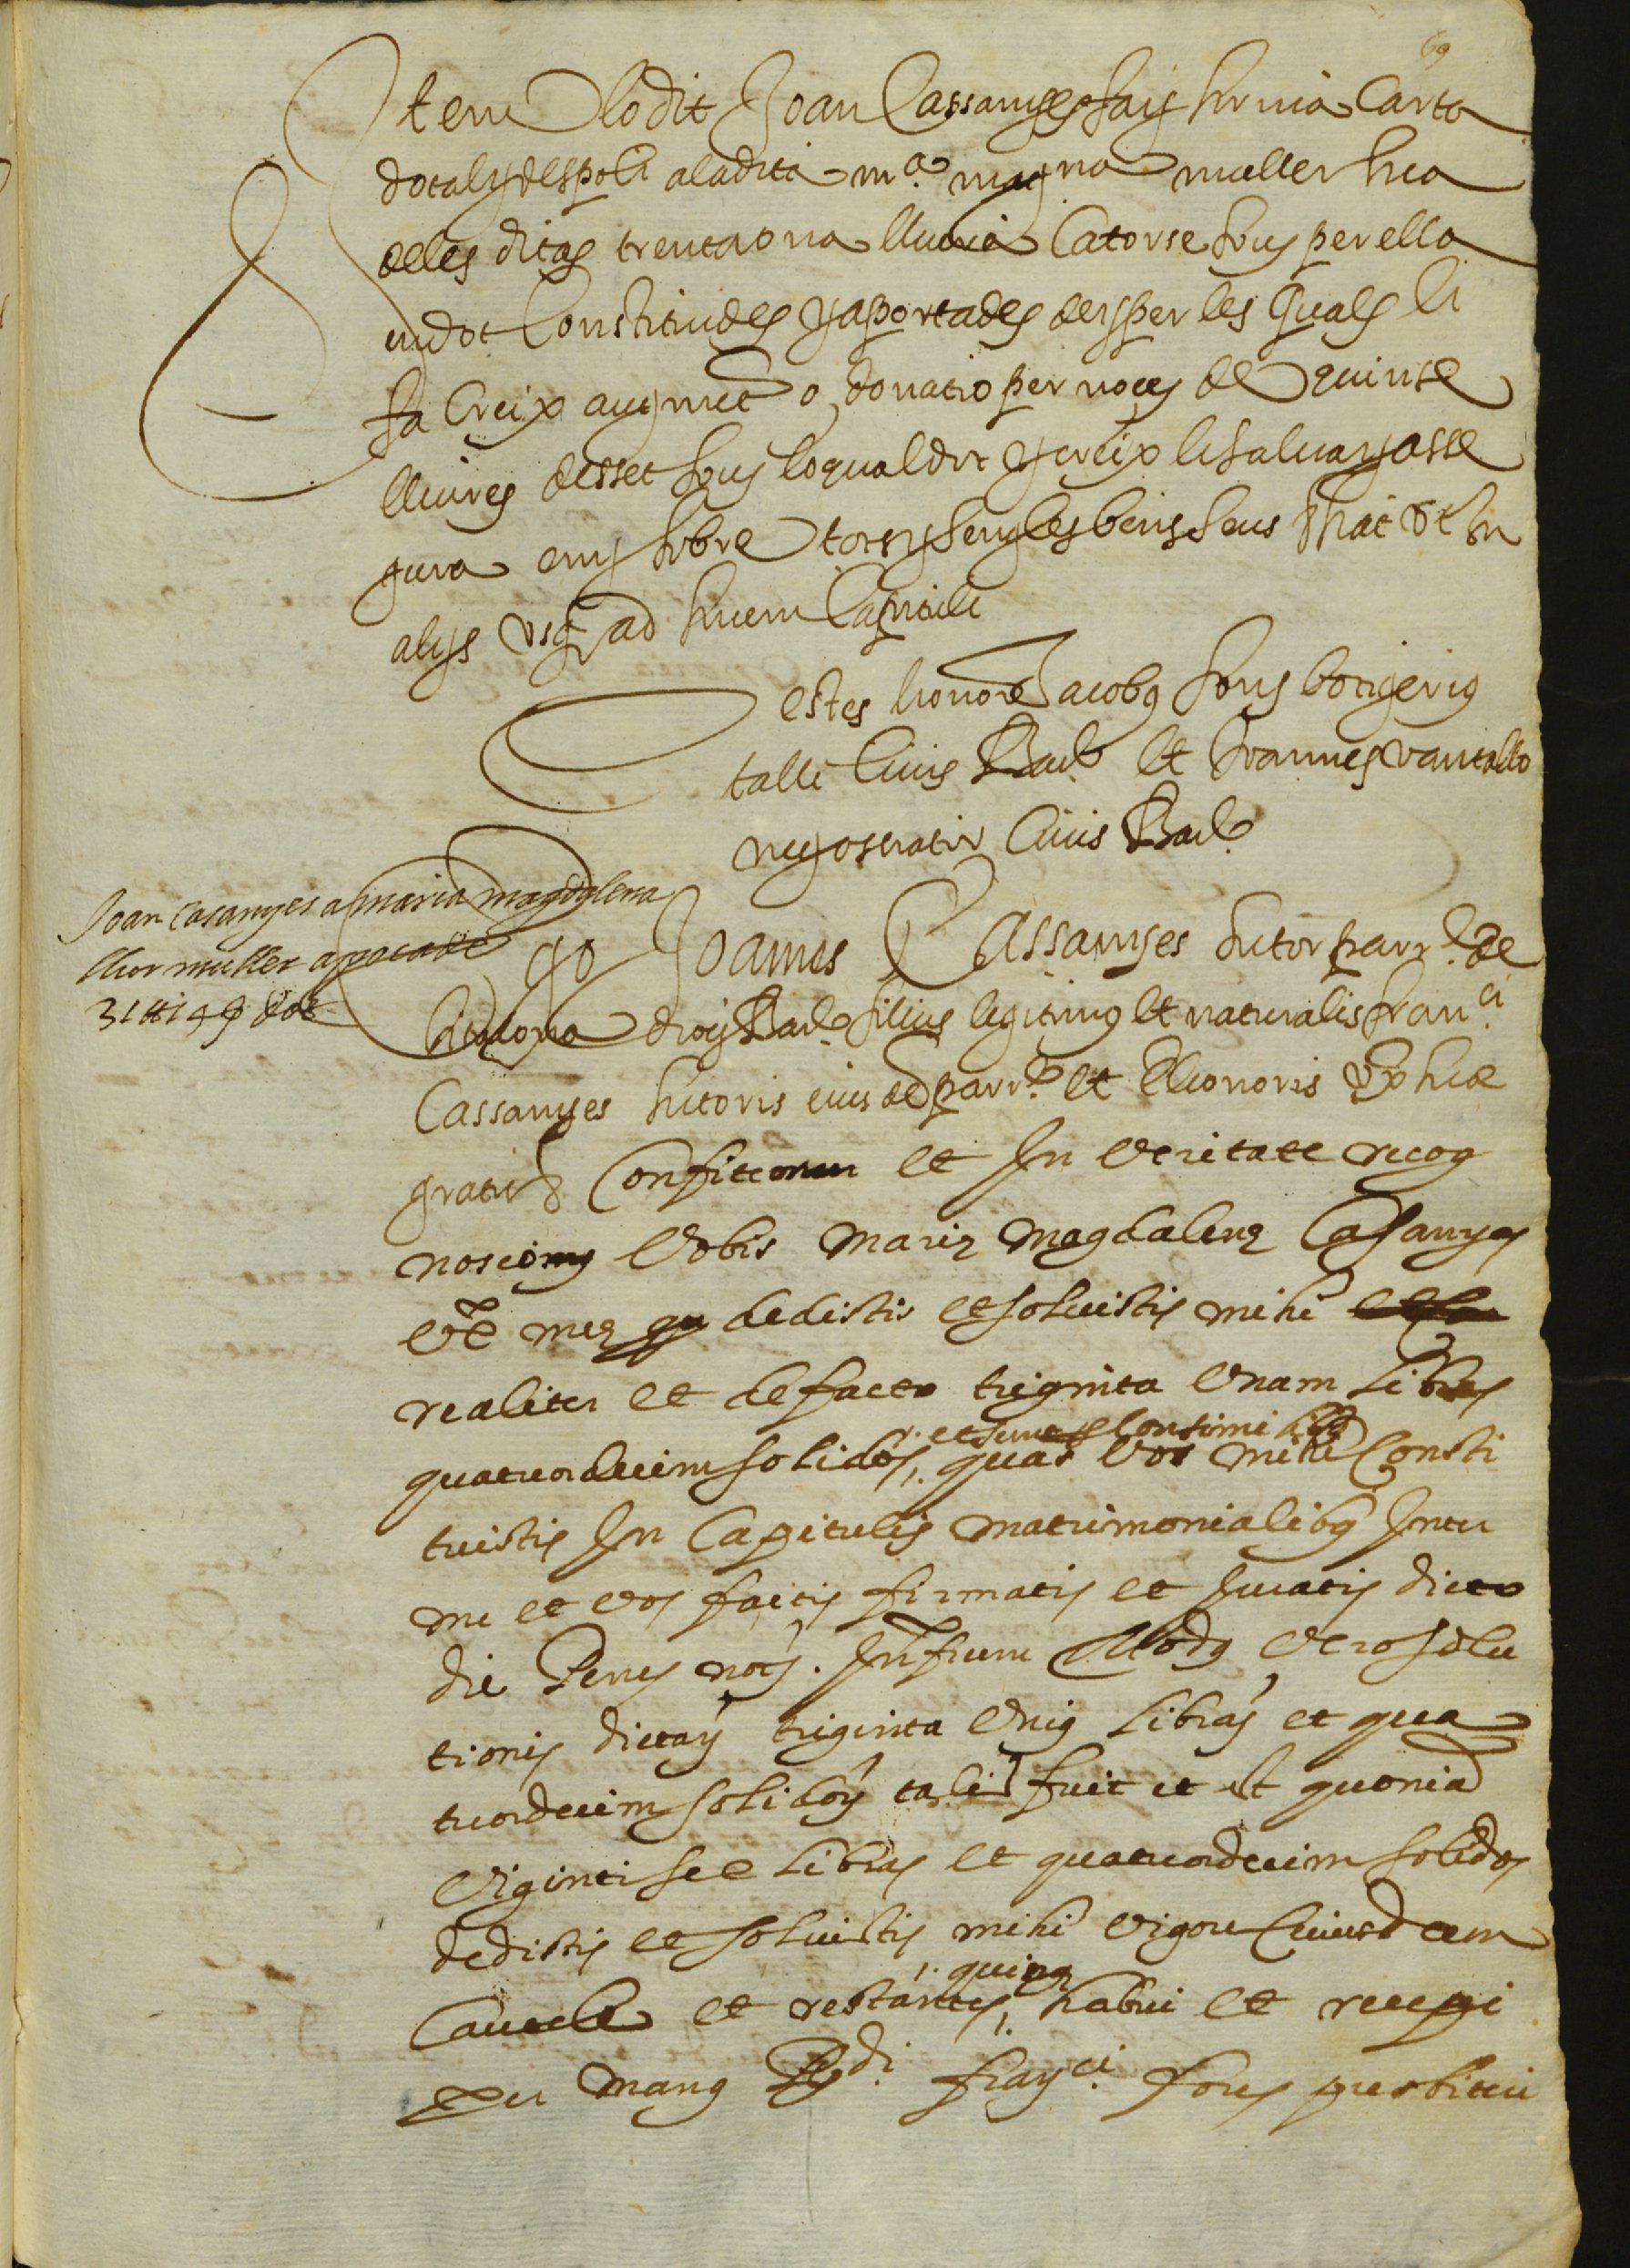 69
Item lo dit Joan Cassanyes fa y firma carta
dotal y despoli a la dita m.ª mag.na muller sua
de les ditas trenta una lliuria catorse sous per ella
en dot constituides y aportades de y per les quals li
fa creix augmet o donatio per noces de quinse
lliures desset sous lo qual dot y creix li salua y asse
gura en y sobre tots y sengles bens seus
alijs usq ad finem capituli
Testes honor Jacobq fons botigeriq
talle ciuis Barª et Joannes vantallo
negosiator ciuis Barª
Joan casanyes a maria magdalena
sa muller apoca de
31 ll 14 s dot
Ego Joannes Cassanyes sutor parr.ª de
diocis Barª filius legitimq et naturalis fran.ci
Cassanyes sutoris eiusde parr.ª et Elionoris ux suæ
gratis Confiteor et In veritate recog
nosco vobis Mariæ Magdalenæ Casanyes
meæ dedistis et soluistis mihi
realiter et de facto triginta unam libras
et sunt consimiles
quatuordecim solidos, quas vos mihi Consti
tuistis In Capitulis matrimonialibq Inter
me et vos factis firmatis et Juratis dicto
die Penes notz. Infrum Modq vero solu
tionis dictarz triginta uniq librarz et qua
tuordecim solidorz talis fuit et est quonia
viginti sex libras et quatuordecim solidos
dedistis et soluistis mihi vigore Cuiusdam
quinq
et restantes, habui et recepi
per manq R.di fran.ci fons prebiteri